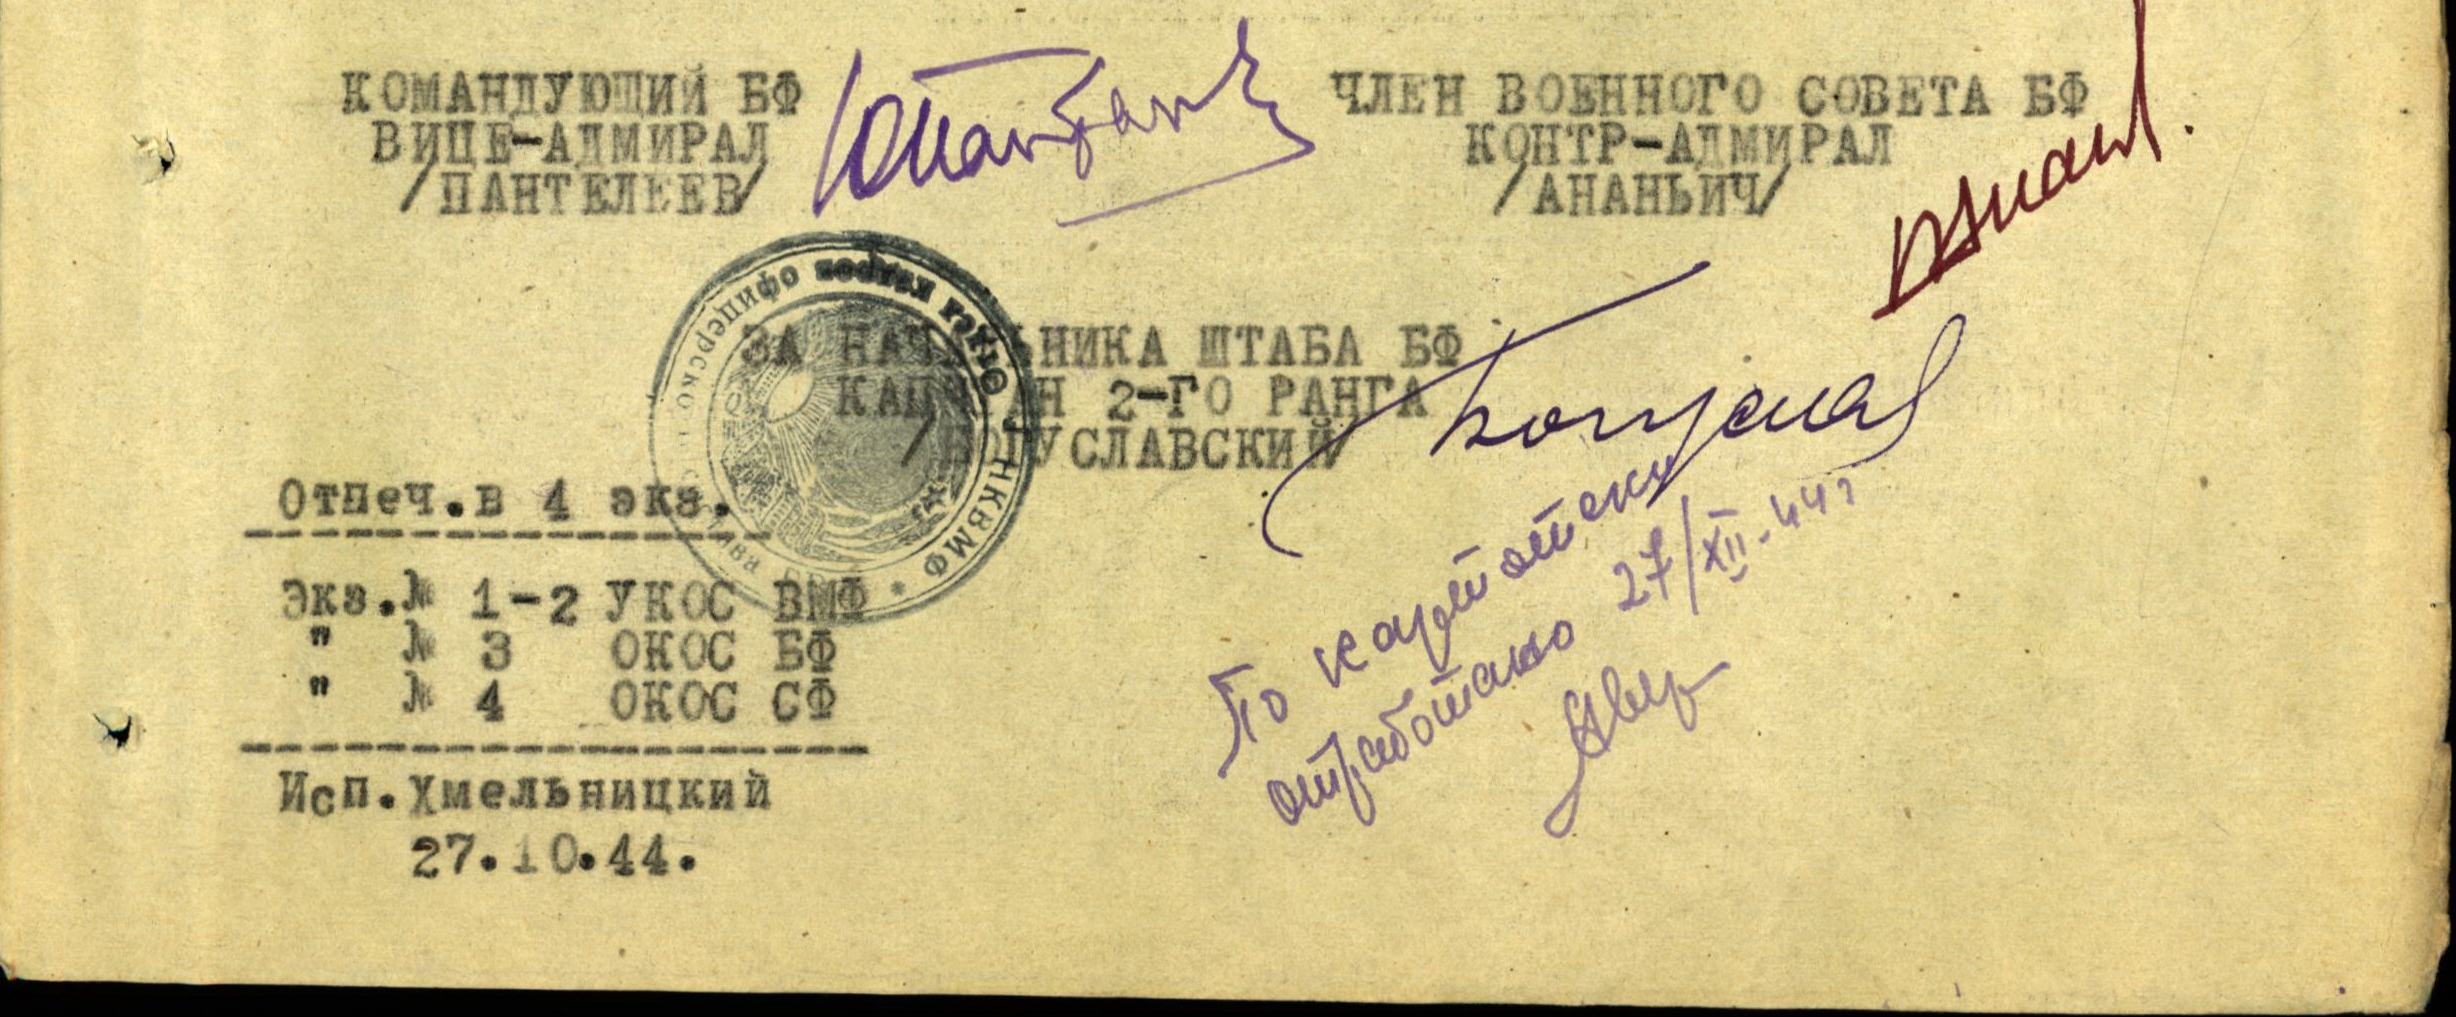 КОМАНДУЮЩИЙ БФ
ВИЦЕ-АДМИРАЛ
/ПАНТЕЛЕЕВ/
ЧЛЕН ВОЕННОГО СОВЕТА БФ
КОНТР-АДМИРАЛ
/АНАНЬИЧ/
ЗА НАЧАЛЬНИКА ШТАБА БФ
КАПИТАН 2-ГО РАНГА
/БОГУСЛАВСКИЙ/
Отдел кадров офицерского НКВМФ *
Отпеч.в 4 экз.
Экз.№ 1-2 УКОС ВМФ
" № 3 ОКОС БФ
" № 4 ОКОС СФ
Исп.Хмельницкий
27.10.44.
По картотеки
отработано 27/XII-44г